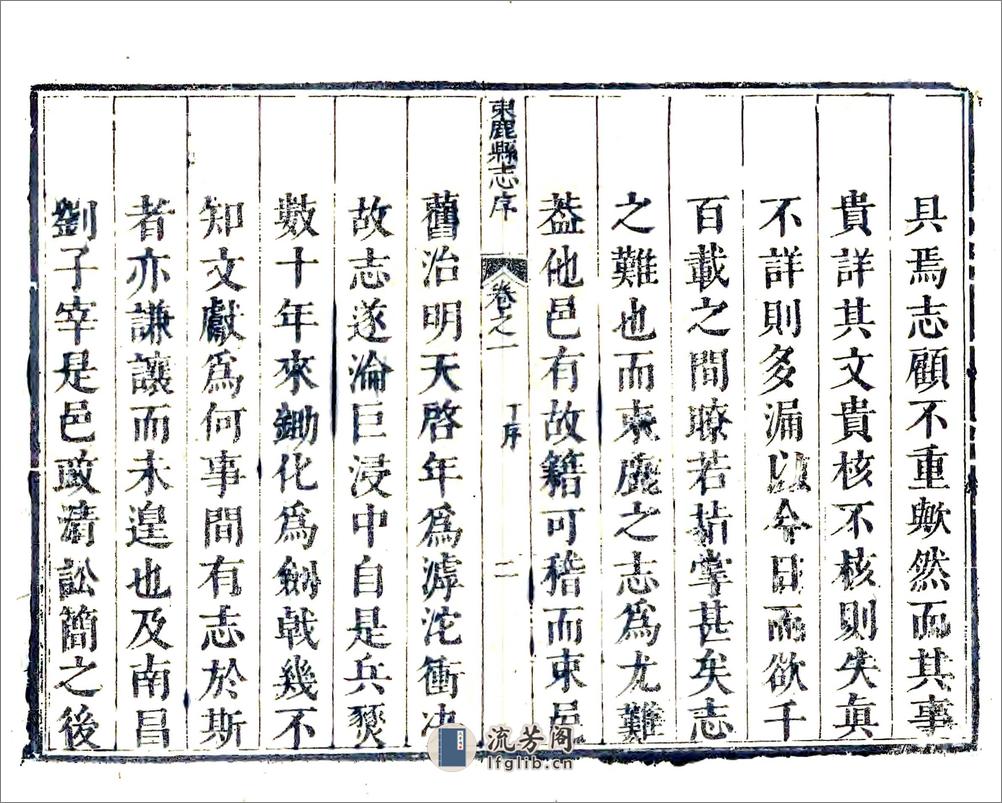 具焉志顧不重歟然而其事
貴詳其文貴核不核則失眞
不詳則多漏以今日而欲千
百載之間瞭若指掌甚矣志
之難也而束鹿之志爲尤難
葢他邑有故籍可稽而束邑
束鹿縣志序 卷之一 丁序 二
舊治明天啓年爲滹沱衝決
故志遂淪巨浸中自是兵燹
數十年來鋤化爲劒戟幾不
知文獻爲何事間有志於斯
者亦謙讓而未遑也及南昌
劉子宰是邑政淸訟簡之後
流芳阁
lfglib.cn